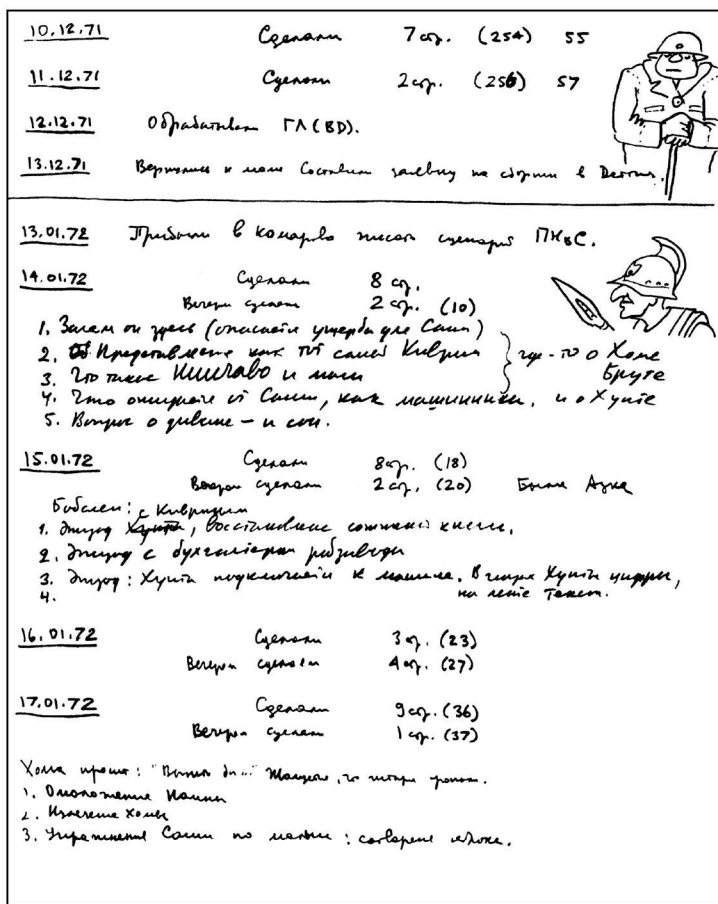 10.12.71 Сделали 7 стр. (254) 55
11.12.71 Сделали 2 стр. (256) 57
12.12.71 Обрабатывали ГЛ(ВD).
13.12.71 Вернулись к маме Составили заявку на сборник в Детгиз.
13.01.72 Прибыли в Комарово писать сценарий ПНвС.
14.01.72 Сделали 8 стр.
Вечером сделали 2 стр. (10)
1. Зачем он здесь (опасаются ущерба для Саши)
2. Представление как тот самый Киврин
3. Что такое НИИЧАВО и маги
где-то о Хоме Бруте
4. Что ожидаете от Саши, как машинника, и о Хунте
5. Вопрос о диване – и сон.
15.01.72 Сделали 8 стр. (18)
Вечером сделали 2 стр. (20) Была Адка
с Кивриным
1. Эпизод Хунта, восстановление сожженной книги.
2. Эпизод с бухгалтером
3. Эпизод: Хунта подключается к машине. В глазах Хунты цифры,
на ленте текст.
4.
16.01.72 Сделали 3 стр. (23)
Вечером сделали 4 стр. (27)
17.01.72 Сделали 9 стр. (36)
Вечером сделали 1 стр. (37)
Хома
1. Омоложение Наины
2. Изгнание Хомы
3. Упражнения Саши по магии: сотворение яблока.